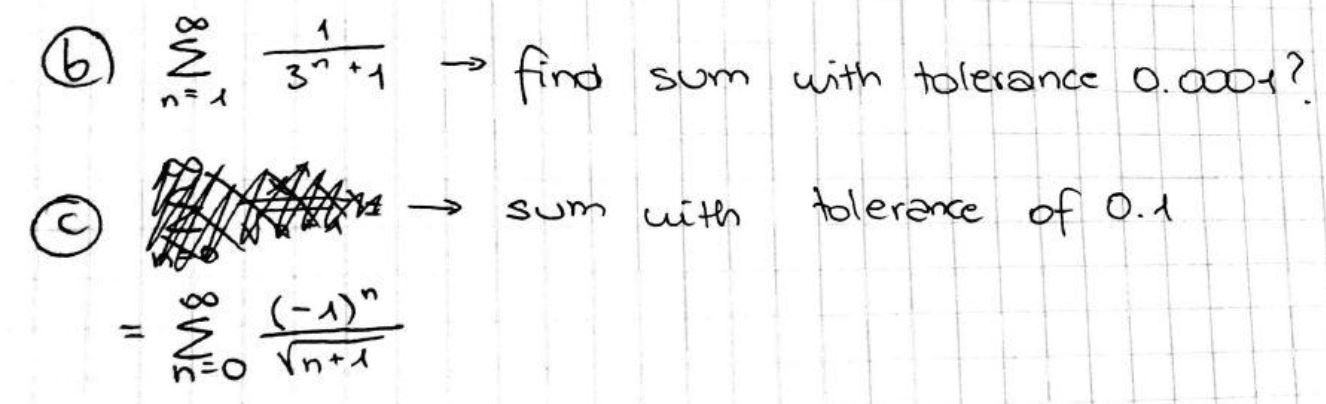 (b) ∞∑n=1 1/(3^n + 1) → find sum with tolerance 0.0001?
(c) → sum with tolerance of 0.1
= ∞∑n=0 (-1)^n/√(n+1)